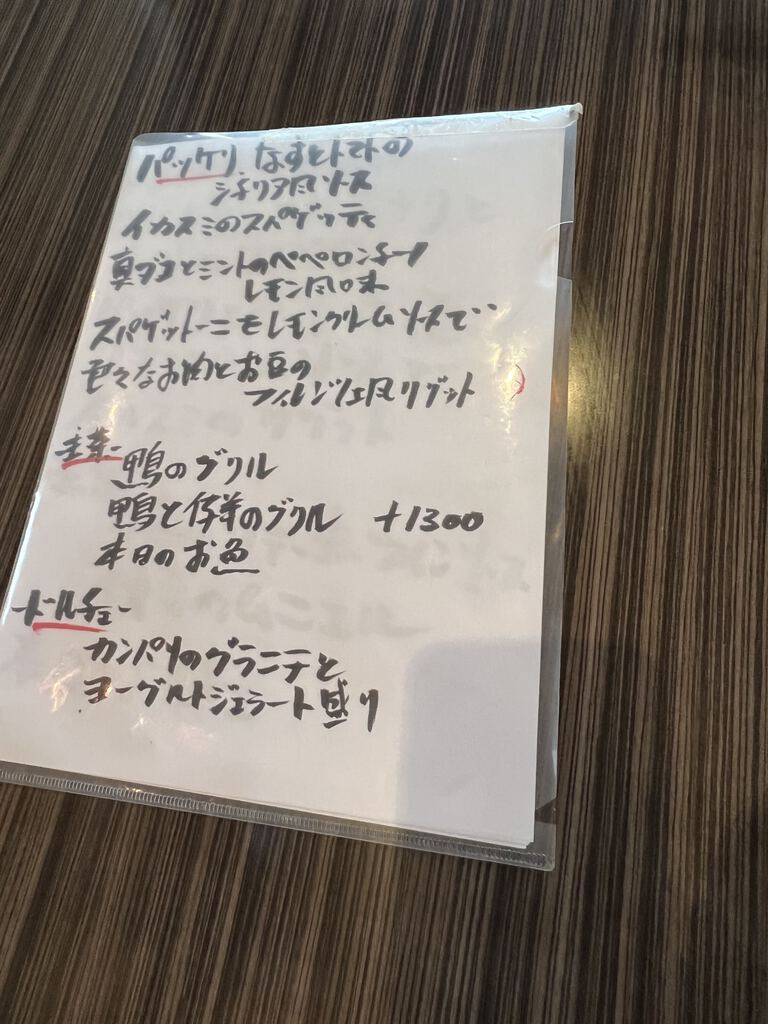 パッケリ なすとトマトの
シチリア風ソース
イカスミのスパゲッティ
真ダコとミントのペペロンチーノ
レモン風味
スパゲットーニモレモンクリームソースで‥
色々なお肉とお豆の
フィレンツェ風リゾット
主菜ー
鴨のグリル
鴨と仔羊のグリル +1300
本日のお魚
ドールチェー
カンパリのグラニテと
ヨーグルトジェラート盛り